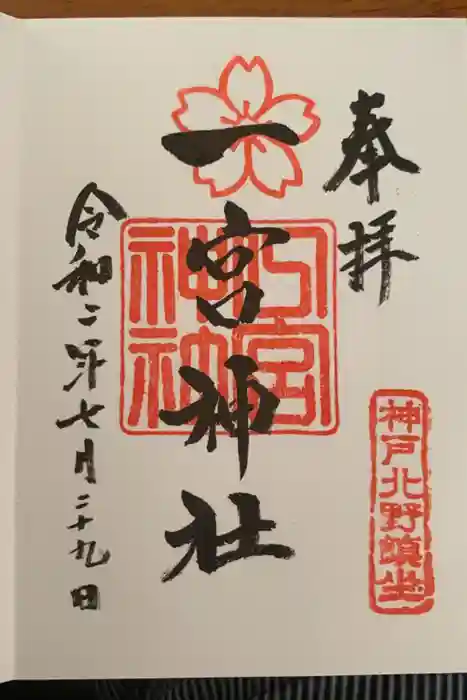 奉拝
神戸北野鎮坐
一宮神社
令和二年七月二十九日